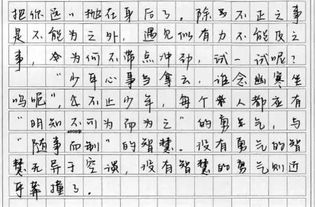 把你远"抛在身后了。除去不正之事
是不能为之外，遇见似有力不能及之
事，为何不带点冲劲，试一试呢？
"少年心事当拿云，谁念幽寒坐
呜呃"，岂止少年，每个人都在有
"明知不可为而为之"的勇气，与
"随事而制"的智慧。没有勇气的智
慧无异于空谈，没有智慧的勇气则近
乎莽撞了。